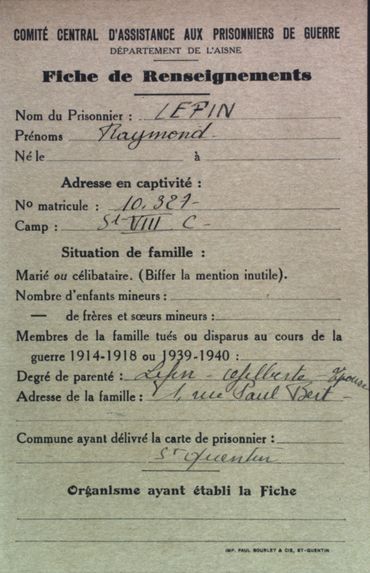 COMITÉ CENTRAL D'ASSISTANCE AUX PRISONNIERS DE GUERRE
DÉPARTEMENT DE L'AISNE
Fiche de Renseignements
Nom du Prisonnier : LEPIN
Prénoms Raymond
Né le à
Adresse en captivité :
No matricule : 10.381
Camp : St VIII C
Situation de famille :
Marié ou célibataire. (Biffer la mention inutile).
Nombre d'enfants mineurs :
— de frères et sœurs mineurs :
Membres de la famille tués ou disparus au cours de la
guerre 1914-1918 ou 1939-1940 :
Degré de parenté : Lepin - Epouse
Adresse de la famille : 1, rue Paul Bert
Commune ayant délivré la carte de prisonnier :
St Quentin
Organisme ayant établi la Fiche
IMP. PAUL BOURLET & CIE, ST-QUENTIN